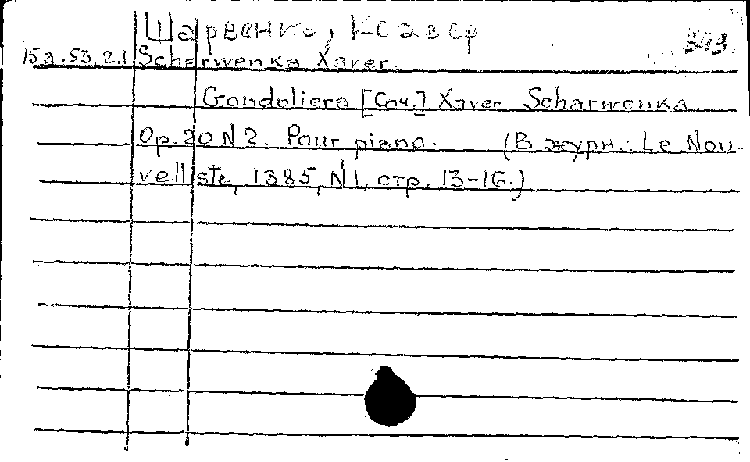 Шарвенка, Ксавер
15a.53.2.1 Scharwenka Xaver. 343
Gondoliera [Соч.] Xaver Scharwenka
Op.20 N2. Pour piano. (В журн.: Le Nou-
velliste, 1885, N1, стр. 13-16.)